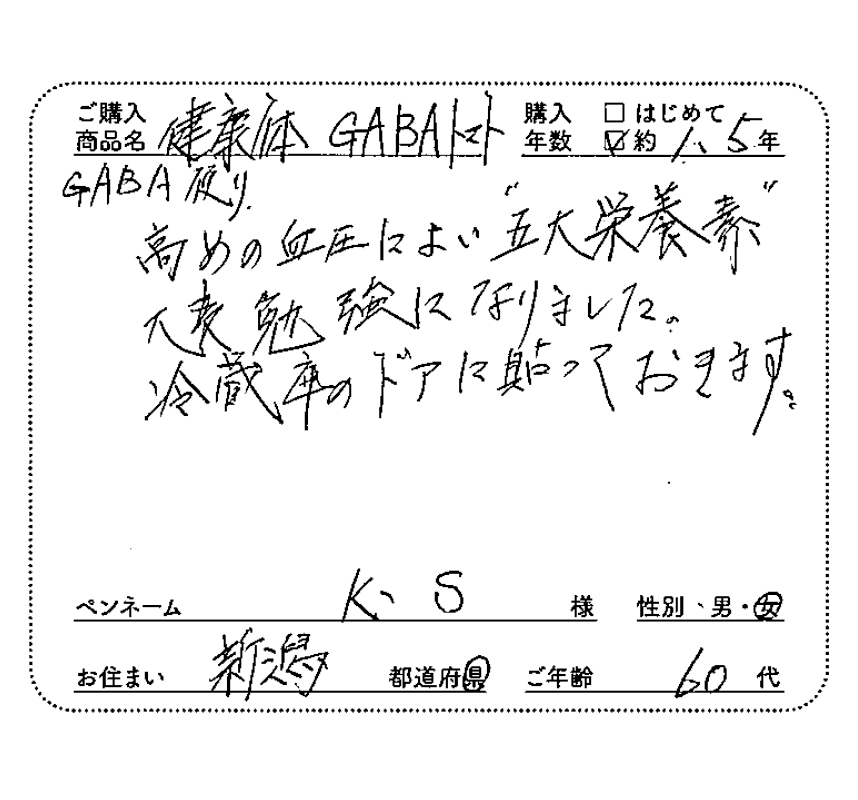 ご購入 商品名 健康体 GABAトマト 購入年数 □ はじめて ☑ 約 1.5 年
GABA便り
高めの血圧によい“五大栄養素”
大変勉強になりました。
冷蔵庫のドアに貼っておきます。
ペンネーム K、S 様 性別・男・女
お住まい 新潟 都道府県 ご年齢 60 代